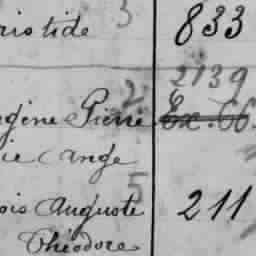 ristide 3 833
2 2139
gène Pierre Ex. 66.
ie Ange
5
ois Auguste 211
Théodore